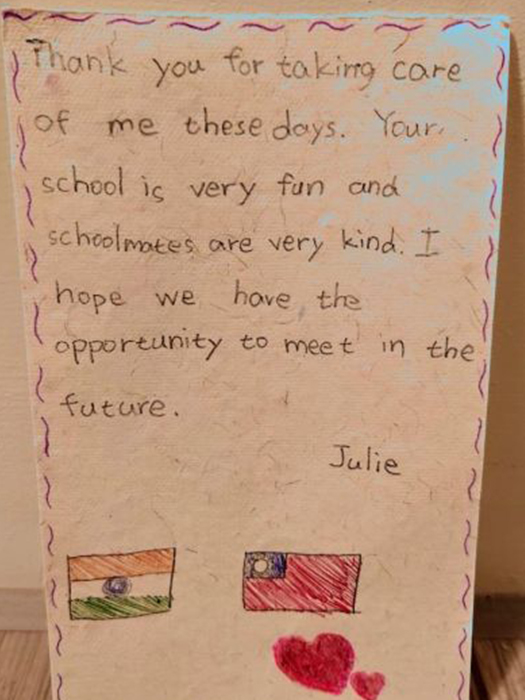 Thank you for taking care
of me these days. Your
school is very fun and
schoolmates are very kind. I
hope we have the
opportunity to meet in the
future.
Julie